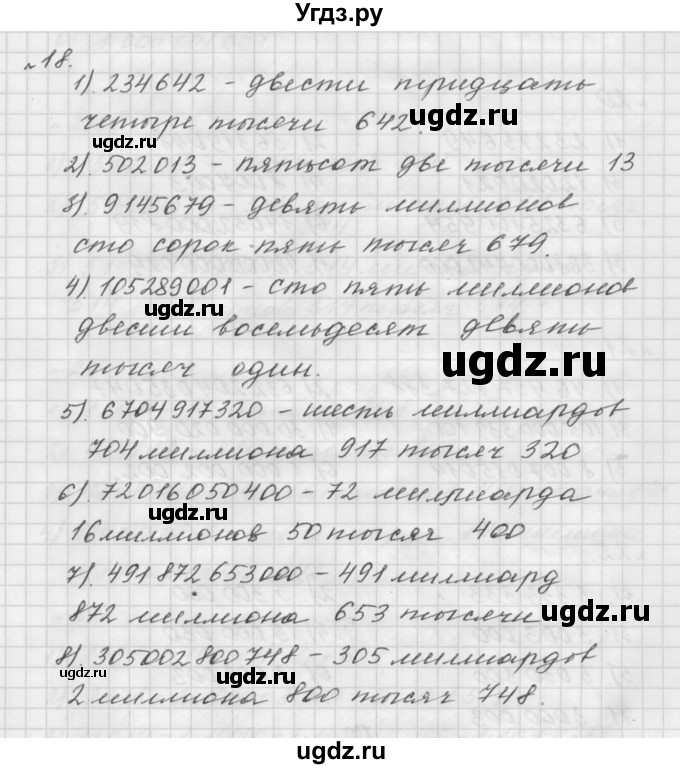 Угдз.ру
№18.
1). 234642 – двести тридцать
четыре тысячи 642.
ugdz.ru
2). 502013 – пятьсот две тысячи 13
3). 9145679 – девять миллионов
сто сорок пять тысяч 679.
4). 105289001 – сто пять миллионов
ugdz.ru
двести восемьдесят девять
ugdz.ru
тысяч один.
5). 6704917320 – шесть миллиардов
704 миллиона 917 тысяч 320
6). 72016050400 – 72 миллиарда
ugdz.ru
16 миллионов 50 тысяч 400
7). 491872653000 – 491 миллиард
872 миллиона 653 тысячи
ugdz.ru
8). 305002800748 – 305 миллиардов
ugdz.ru
2 миллиона 800 тысяч 748.
ugdz.ru